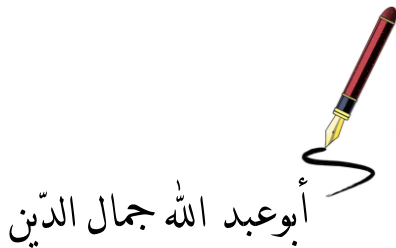 أبوعبد الله جمال الدّين